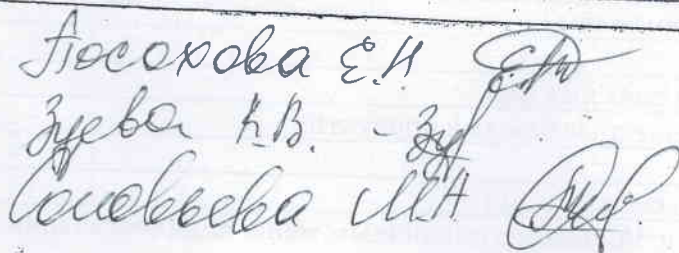 Посохова Е.Н
Зуева К.В. - Зу
Соловьева М.Н